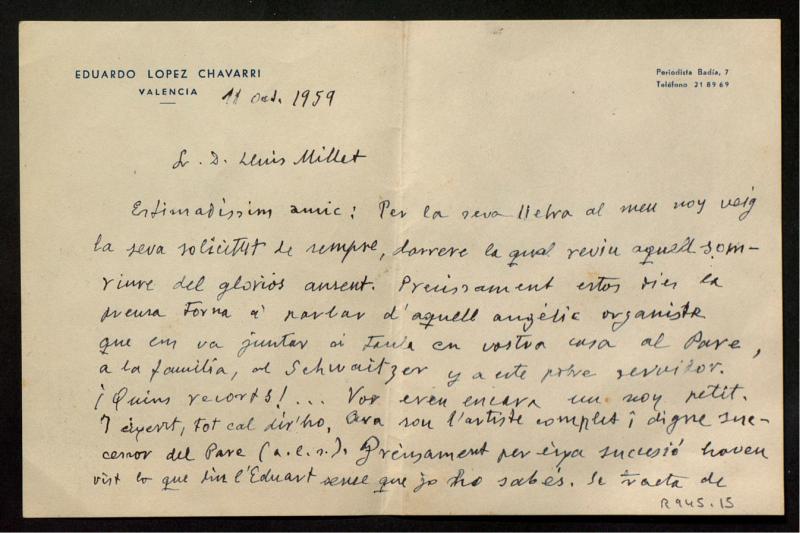 EDUARDO LOPEZ CHAVARRI
VALENCIA
Periodista Badía, 7
Teléfono 21 89 69
11 oct. 1959
Sr. D. Lluis Millet
Estimadíssim amic: Per la seva lletra al meu noy veig
la seva solicitut de sempre, darrere la qual reviu aquell som-
riure del gloriós ausent. Precissament estos dies la
prensa torna á parlar d'aquell angélic organiste
que ens va juntar á taula en vostra casa al Pare,
a la familia, al Schwaitzer y a este pobre servidor.
¡Quins records!... Vos éreu encara un noy petit.
I tot cal dir'ho. Ara sou l'artiste complet i digne suc-
cessor del Pare (a.c.s.). Precissament per eixa sucesió haveu
vist lo que diu l'Eduart sense que jo ho sabés. Se tracta de
R 945.15